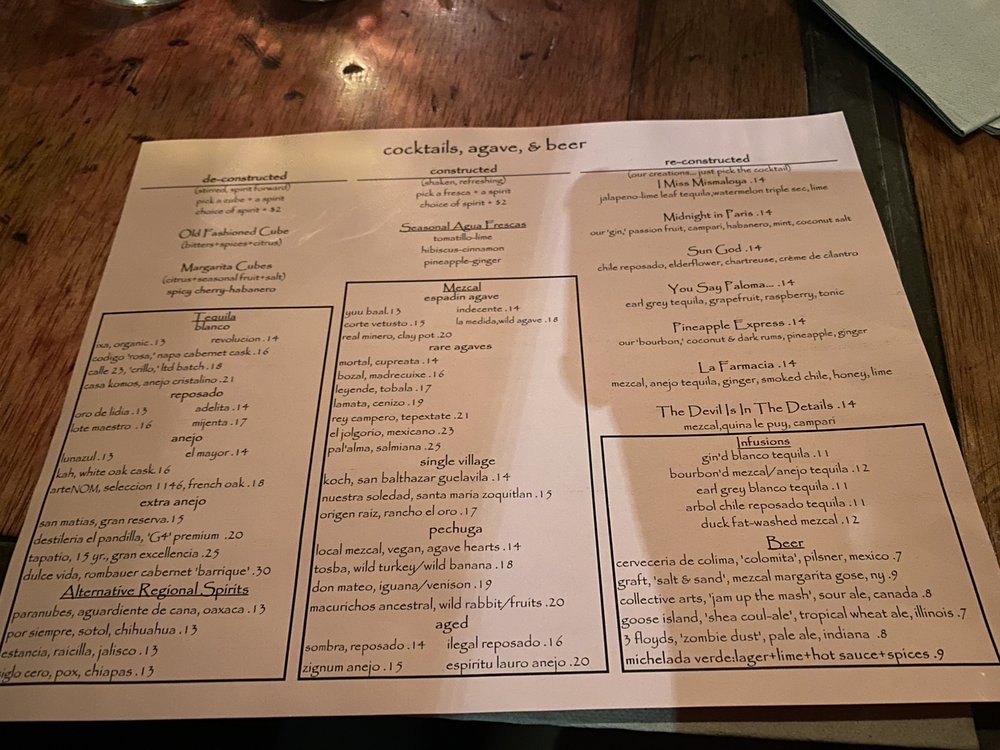 cocktails, agave, & beer
de-constructed
(stirred, spirit forward)
pick a cube + a spirit
choice of spirit + $2
Old Fashioned Cube
(bitters+spices+citrus)
Margarita Cubes
(citrus+seasonal fruit+salt)
spicy cherry-habanero
Tequila
blanco
ixa, organic .13 revolucion .14
codigo 'rosa,' napa cabernet cask .16
calle 23, 'crillo,' ltd batch .18
casa komos, anejo cristalino .21
reposado
oro de lidia .13 adelita .14
lote maestro .16 mijenta .17
anejo
lunazul .13 el mayor .14
kah, white oak cask .16
arteNOM, seleccion 1146, french oak .18
extra anejo
san matias, gran reserva .15
destileria el pandilla, 'G4' premium .20
tapatio, 15 yr., gran excellencia .25
dulce vida, rombauer cabernet 'barrique' .30
Alternative Regional Spirits
paranubes, aguardiente de cana, oaxaca .13
por siempre, sotol, chihuahua .13
estancia, raicilla, jalisco .13
siglo cero, pox, chiapas .13
constructed
(shaken, refreshing)
pick a fresca + a spirit
choice of spirit + $2
Seasonal Agua Frescas
tomatillo-lime
hibiscus-cinnamon
pineapple-ginger
Mezcal
espadin agave
yuu baal .13 indecente .14
corte vetusto .15 la medida, wild agave .18
real minero, clay pot .20
rare agaves
mortal, cupreata .14
bozal, madrecuixe .16
leyende, tobala .17
lamata, cenizo .19
rey campero, tepextate .21
el jolgorio, mexicano .23
pal'alma, salmiana .25
single village
koch, san balthazar guelavila .14
nuestra soledad, santa maria zoquitlan .15
origen raiz, rancho el oro .17
pechuga
local mezcal, vegan, agave hearts .14
tosba, wild turkey/wild banana .18
don mateo, iguana/venison .19
macurichos ancestral, wild rabbit/fruits .20
aged
sombra, reposado .14 ilegal reposado .16
zignum anejo .15 espiritu lauro anejo .20
re-constructed
(our creations... just pick the cocktail)
I Miss Mismaloya .14
jalapeno-lime leaf tequila,watermelon triple sec, lime
Midnight in Paris .14
our 'gin,' passion fruit, campari, habanero, mint, coconut salt
Sun God .14
chile reposado, elderflower, chartreuse, crème de cilantro
You Say Paloma... .14
earl grey tequila, grapefruit, raspberry, tonic
Pineapple Express .14
our 'bourbon,' coconut & dark rums, pineapple, ginger
La Farmacia .14
mezcal, anejo tequila, ginger, smoked chile, honey, lime
The Devil Is In The Details .14
mezcal,quina le puy, campari
Infusions
gin'd blanco tequila .11
bourbon'd mezcal/anejo tequila .12
earl grey blanco tequila .11
arbol chile reposado tequila .11
duck fat-washed mezcal .12
Beer
cerveceria de colima, 'colomita', pilsner, mexico .7
graft, 'salt & sand', mezcal margarita gose, ny .9
collective arts, 'jam up the mash', sour ale, canada .8
goose island, 'shea coul-ale', tropical wheat ale, illinois .7
3 floyds, 'zombie dust', pale ale, indiana .8
michelada verde:lager+lime+hot sauce+spices .9